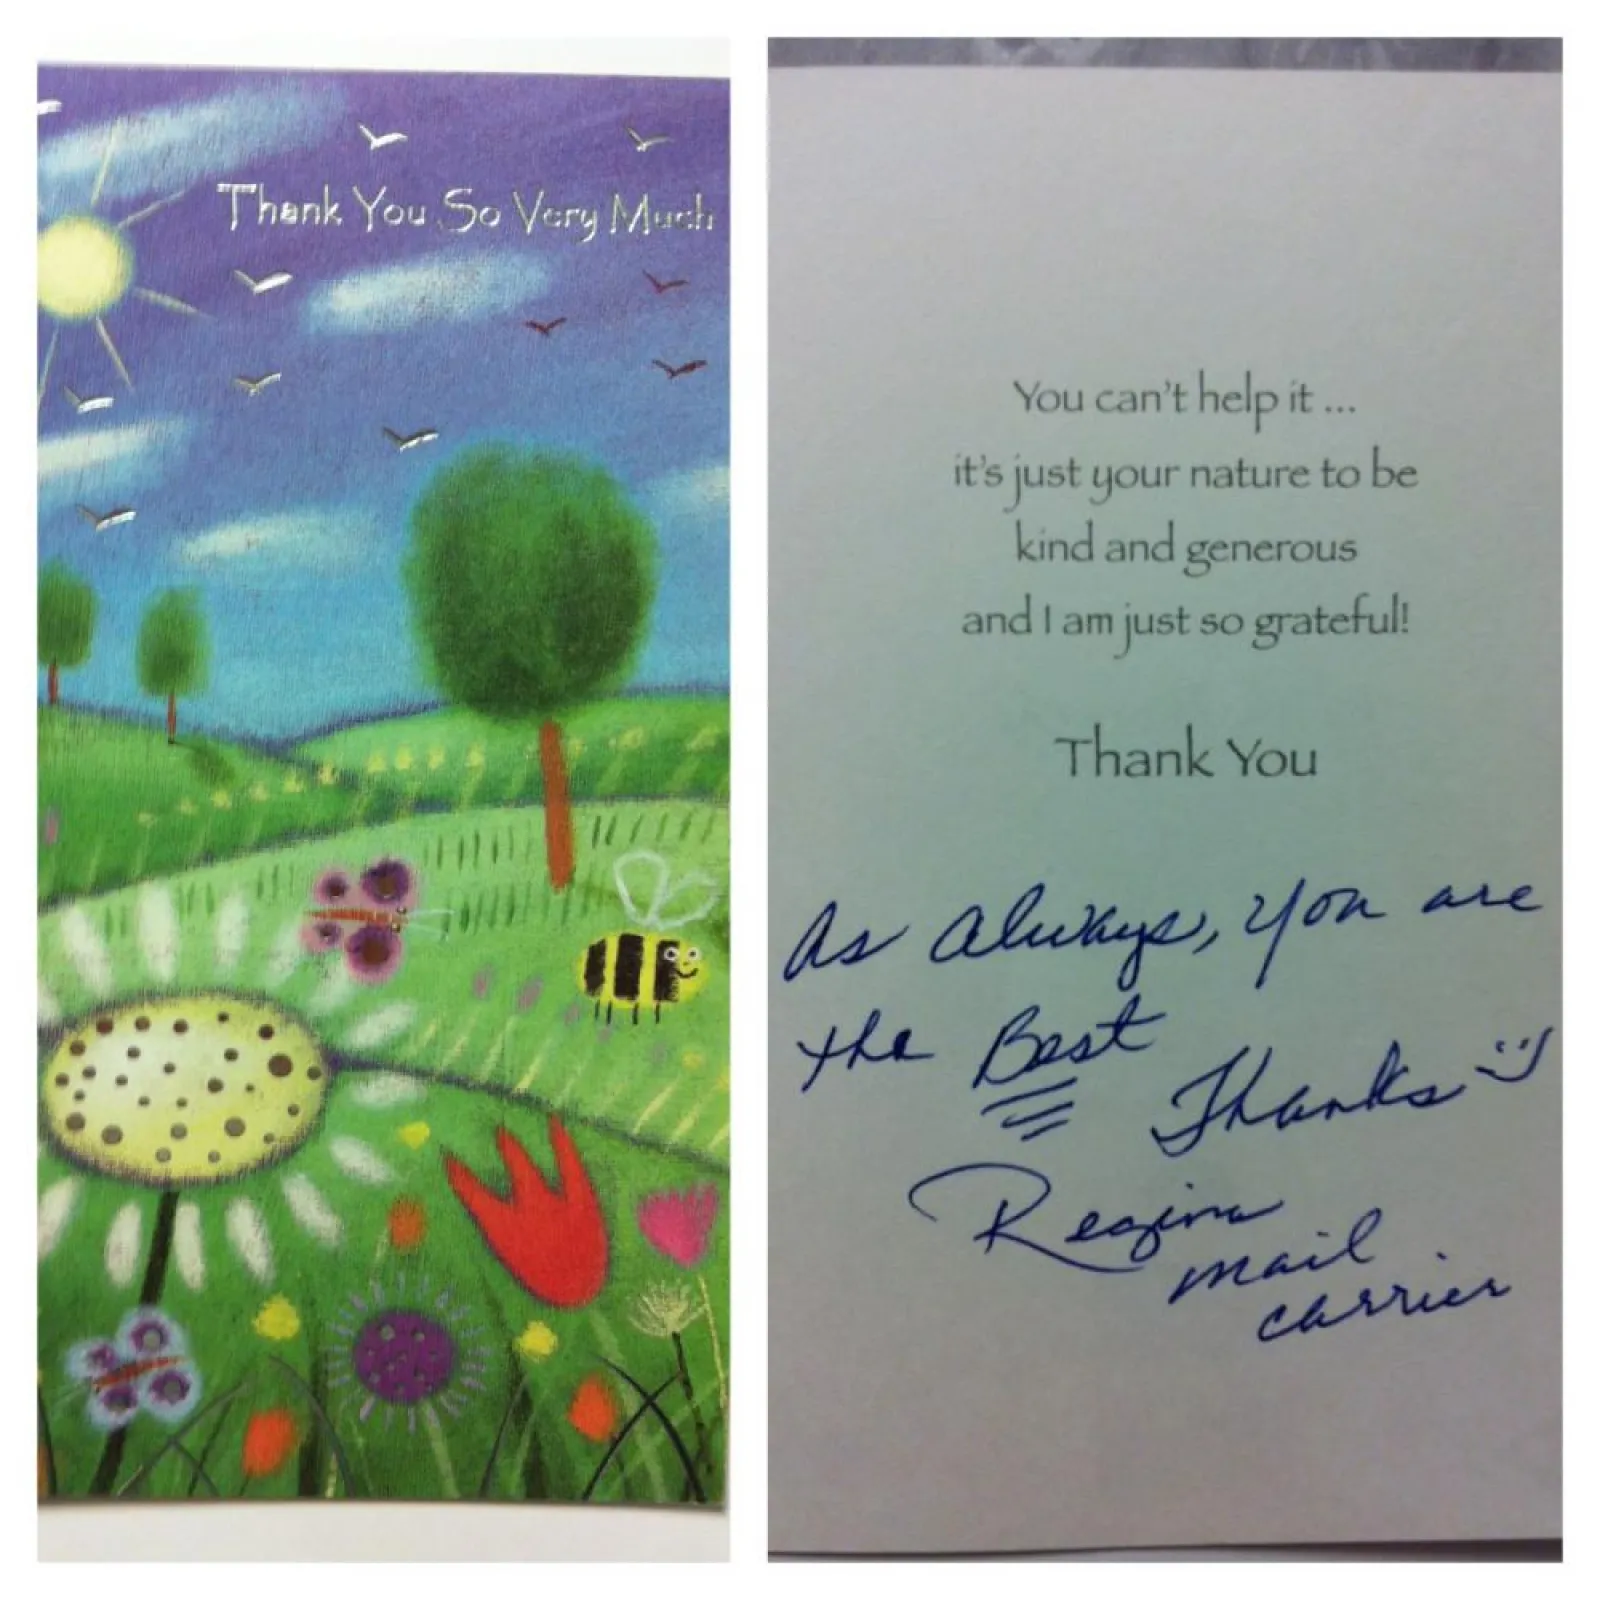 Thank You So Very Much
You can't help it ...
it's just your nature to be
kind and generous
and I am just so grateful!
Thank You
As Always, You are
the Best
Thanks :)
Regina
mail
carrier